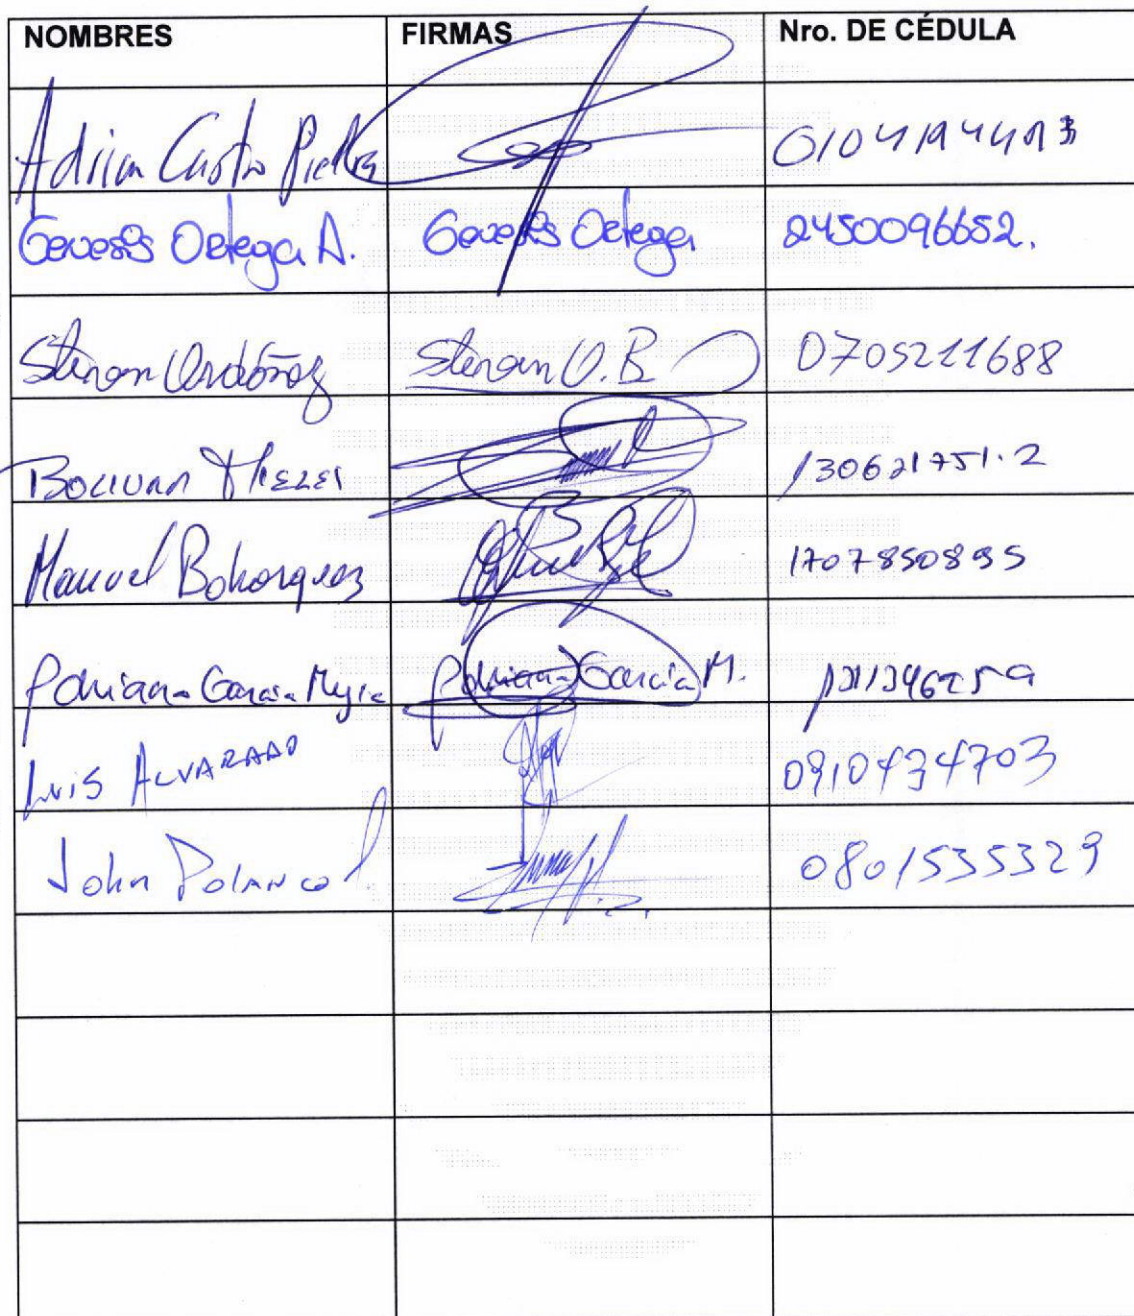 NOMBRES FIRMAS Nro. DE CÉDULA
Adrian Castro Piedra 0104194413
Genesis Ortega A. Genesis Ortega 2450096652.
Stenan Ordóñez Stenan O.B 0705211688
130621751-2
Manuel Bohorquez 1707850895
Adriana Garcia Mejia Adriana Garcia M.
Luis ALVARADO
John Polanco 0801535329